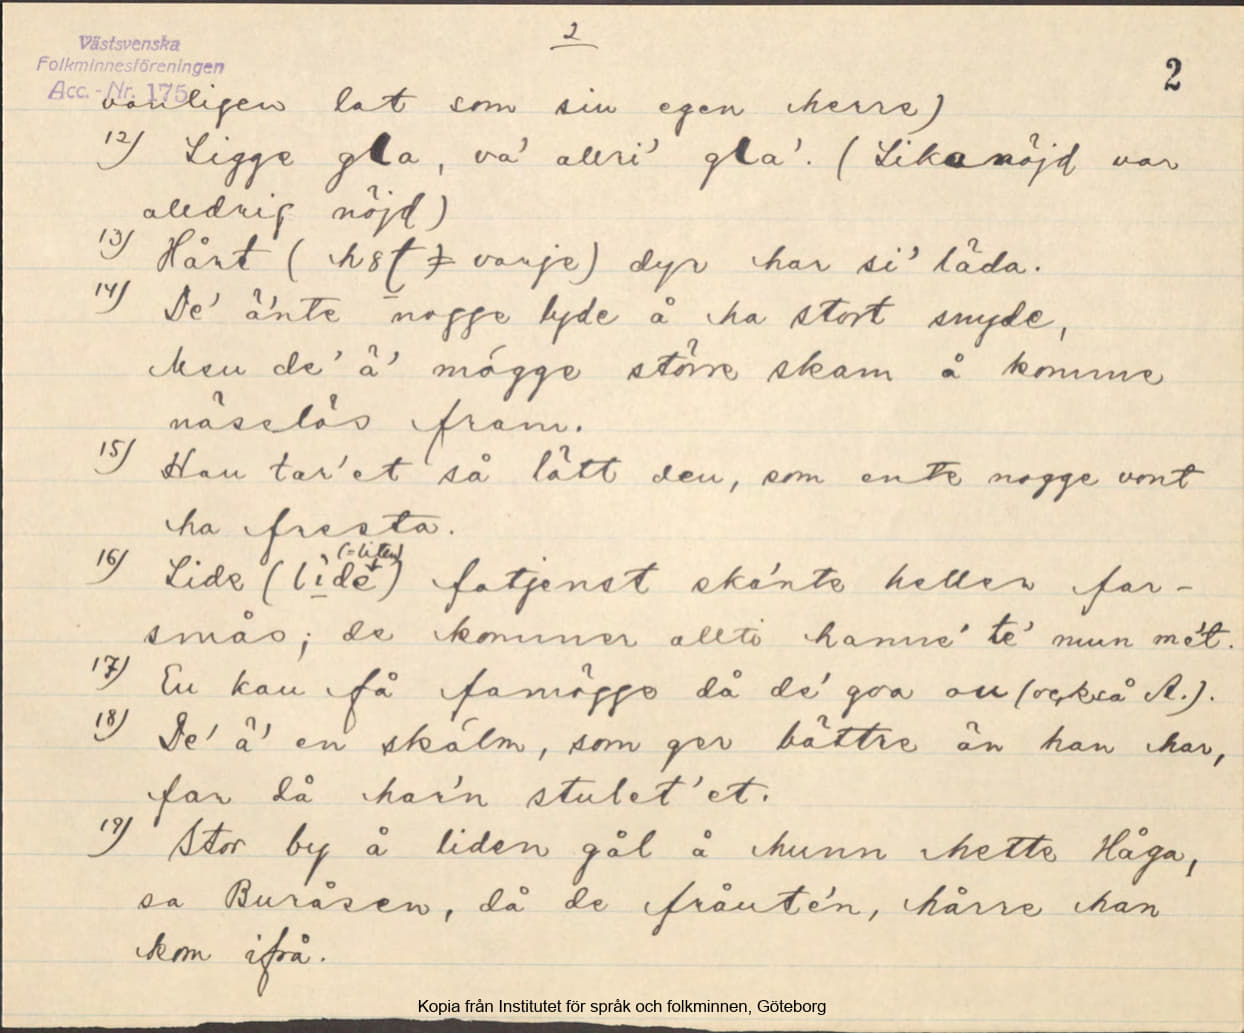 2
Västsvenska
Folkminnesföreningen
Acc.-Nr. 175
2
vanligen lat som sin egen herre)
12) Ligge gla, va' allri' gla'. (Lika nöjd var
alldrig nöjd)
13) Hårt ( = varje) dyr har si' läda.
14) De' ä'nte nogge lyde å ha stort snyde,
Men de' ä' mögge större skam å komme
näselös fram.
15) Han tar'et så lätt den, som ente nogge vont
ha fresta.
16) Lide (lide (=liten)) fatjenst ska'nte heller far-
smås; de kommer allti hanne' te' mun me't.
17) En kan få famögge då de' goa au (också A.).
18) De' ä' en skälm, som ger bättre än han har,
far då har'n stulet'et.
19) Stor by å liden gål å hunn hette Håga,
sa Buråsen, då de fråute'n, hårre han
kom ifrå.
Kopia från Institutet för språk och folkminnen, Göteborg